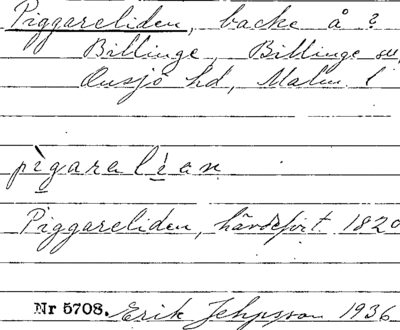 Piggareliden, backe å ?
Billinge, Billinge sn,
Onsjö hd, Malm. l
pìgaralìan
Piggareliden, 1820
Nr 5708. Erik Jeppsson 1936